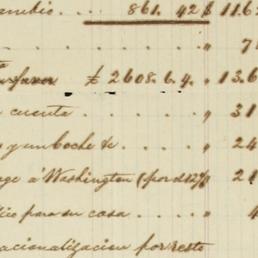 ambio. 861. 42 $ 11.62
. . . . . . . . " 7
ta
u favor £ 2608. 6. 4. " 13.6
cuenta . . . . " 31
y un boche &c . . . " 24
age á Washington (por d127) 21
ció para su casa . . . . " 4
acionalizacion por resto